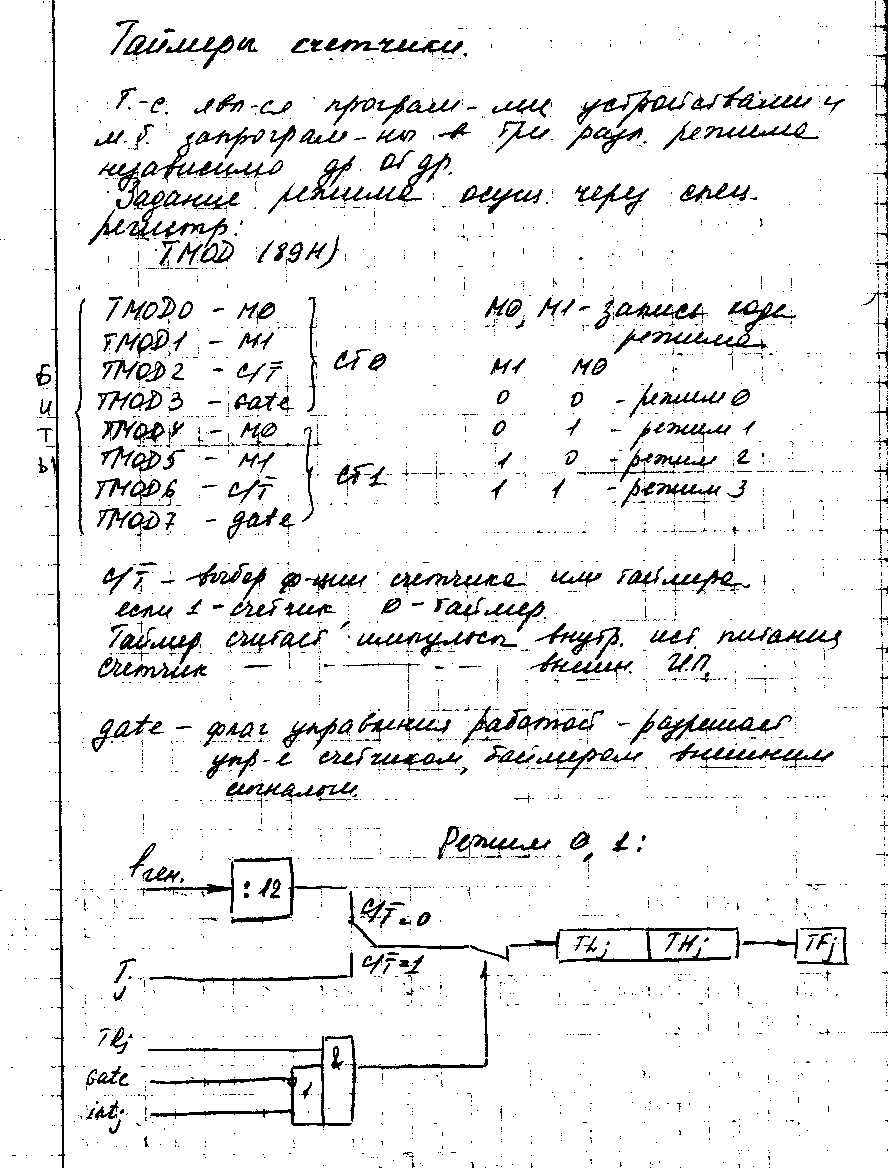 Таймеры счетчики.
Т.-с. явл-ся програм-ми устройствами и
м.б. запрограм-ны в три разл. режима
независимо др от др.
Задание режима осущ. через спец.
регистр:
TMOD (89H)
Биты
TMOD0 - M0
TMOD1 - M1
TMOD2 - C/T̅
TMOD3 - Gate
CT0
TMOD4 - M0
TMOD5 - M1
TMOD6 - C/T̅
TMOD7 - gate
CT1
M0, M1 - запись кода
режима.
M1 M0
0 0 - режим 0
0 1 - режим 1
1 0 - режим 2
1 1 - режим 3
C/T̅ - выбор ф-ции счетчика или таймера
если 1 - счетчик, 0 - таймер
Таймер считает импульсы внутр. ист. питания
Счетчик — — - — внешн. И.П.
gate - флаг управления работой - разрешает
упр-е счетчиком, таймером внешним
сигналом
Режим 0, 1:
ген.
:12
C/T̅=0
C/T̅=1
Tj
TLj THj TFj
TRj
Gate
intj
&
1